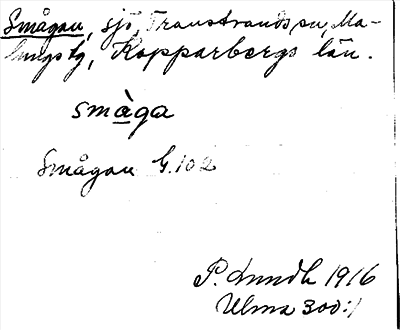 Smågan, sjö, Transtrands sn, Ma-
lungs tg, Kopparbergs län.
småga
Smågan G.102
P. Lundh 1916
Ulma 300:1